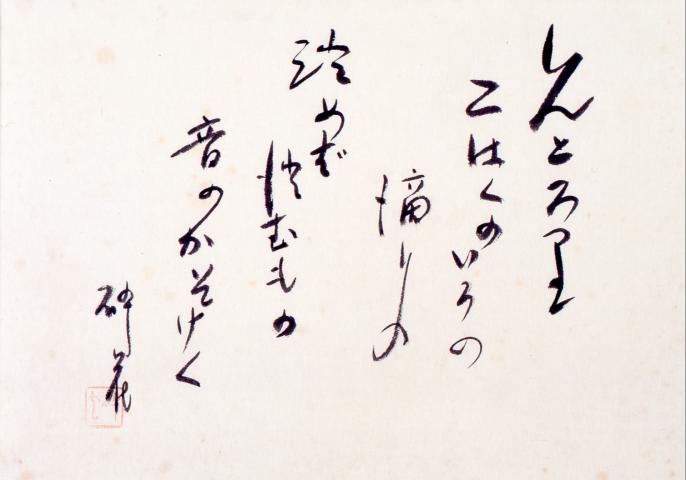 しんとろり
こはくのいろの
滴りの
めば
むもの
音のかそけく
砕花